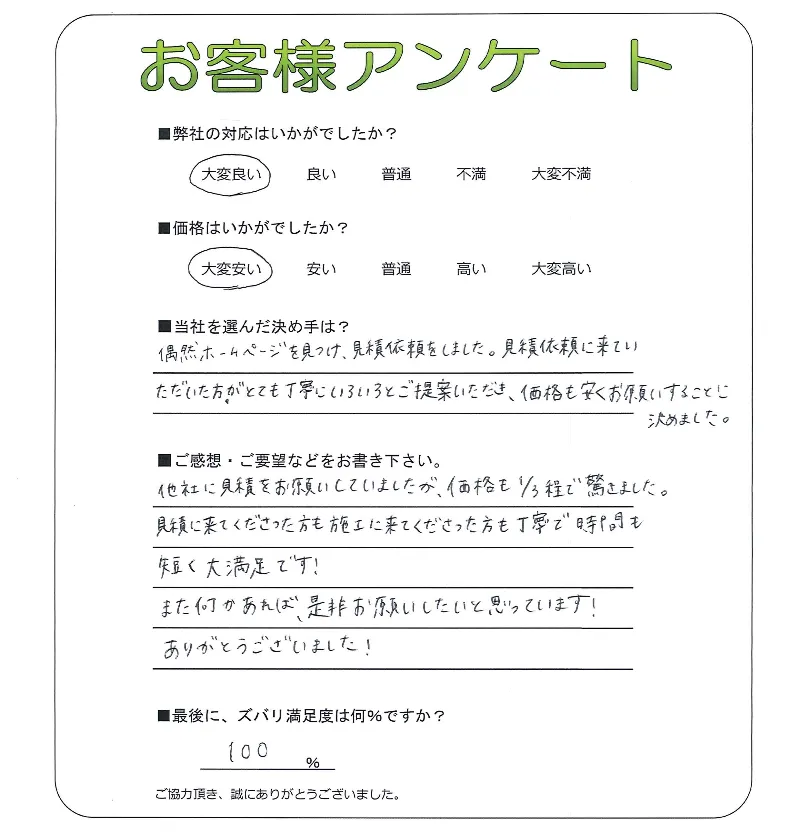 お客様アンケート
■弊社の対応はいかがでしたか？
大変良い 良い 普通 不満 大変不満
■価格はいかがでしたか？
大変安い 安い 普通 高い 大変高い
■当社を選んだ決め手は？
偶然ホームページを見つけ、見積依頼をしました。見積依頼に来てい
ただいた方がとても丁寧にいろいろとご提案いただき、価格も安くお願いすることに
決めました。
■ご感想・ご要望などをお書き下さい。
他社に見積をお願いしていましたが、価格も1/3程で驚きました。
見積に来てくださった方も施工に来てくださった方も丁寧で時間も
短く大満足です!
また何かあれば、是非お願いしたいと思っています!
ありがとうございました!
■最後に、ズバリ満足度は何％ですか？
100 %
ご協力頂き、誠にありがとうございました。